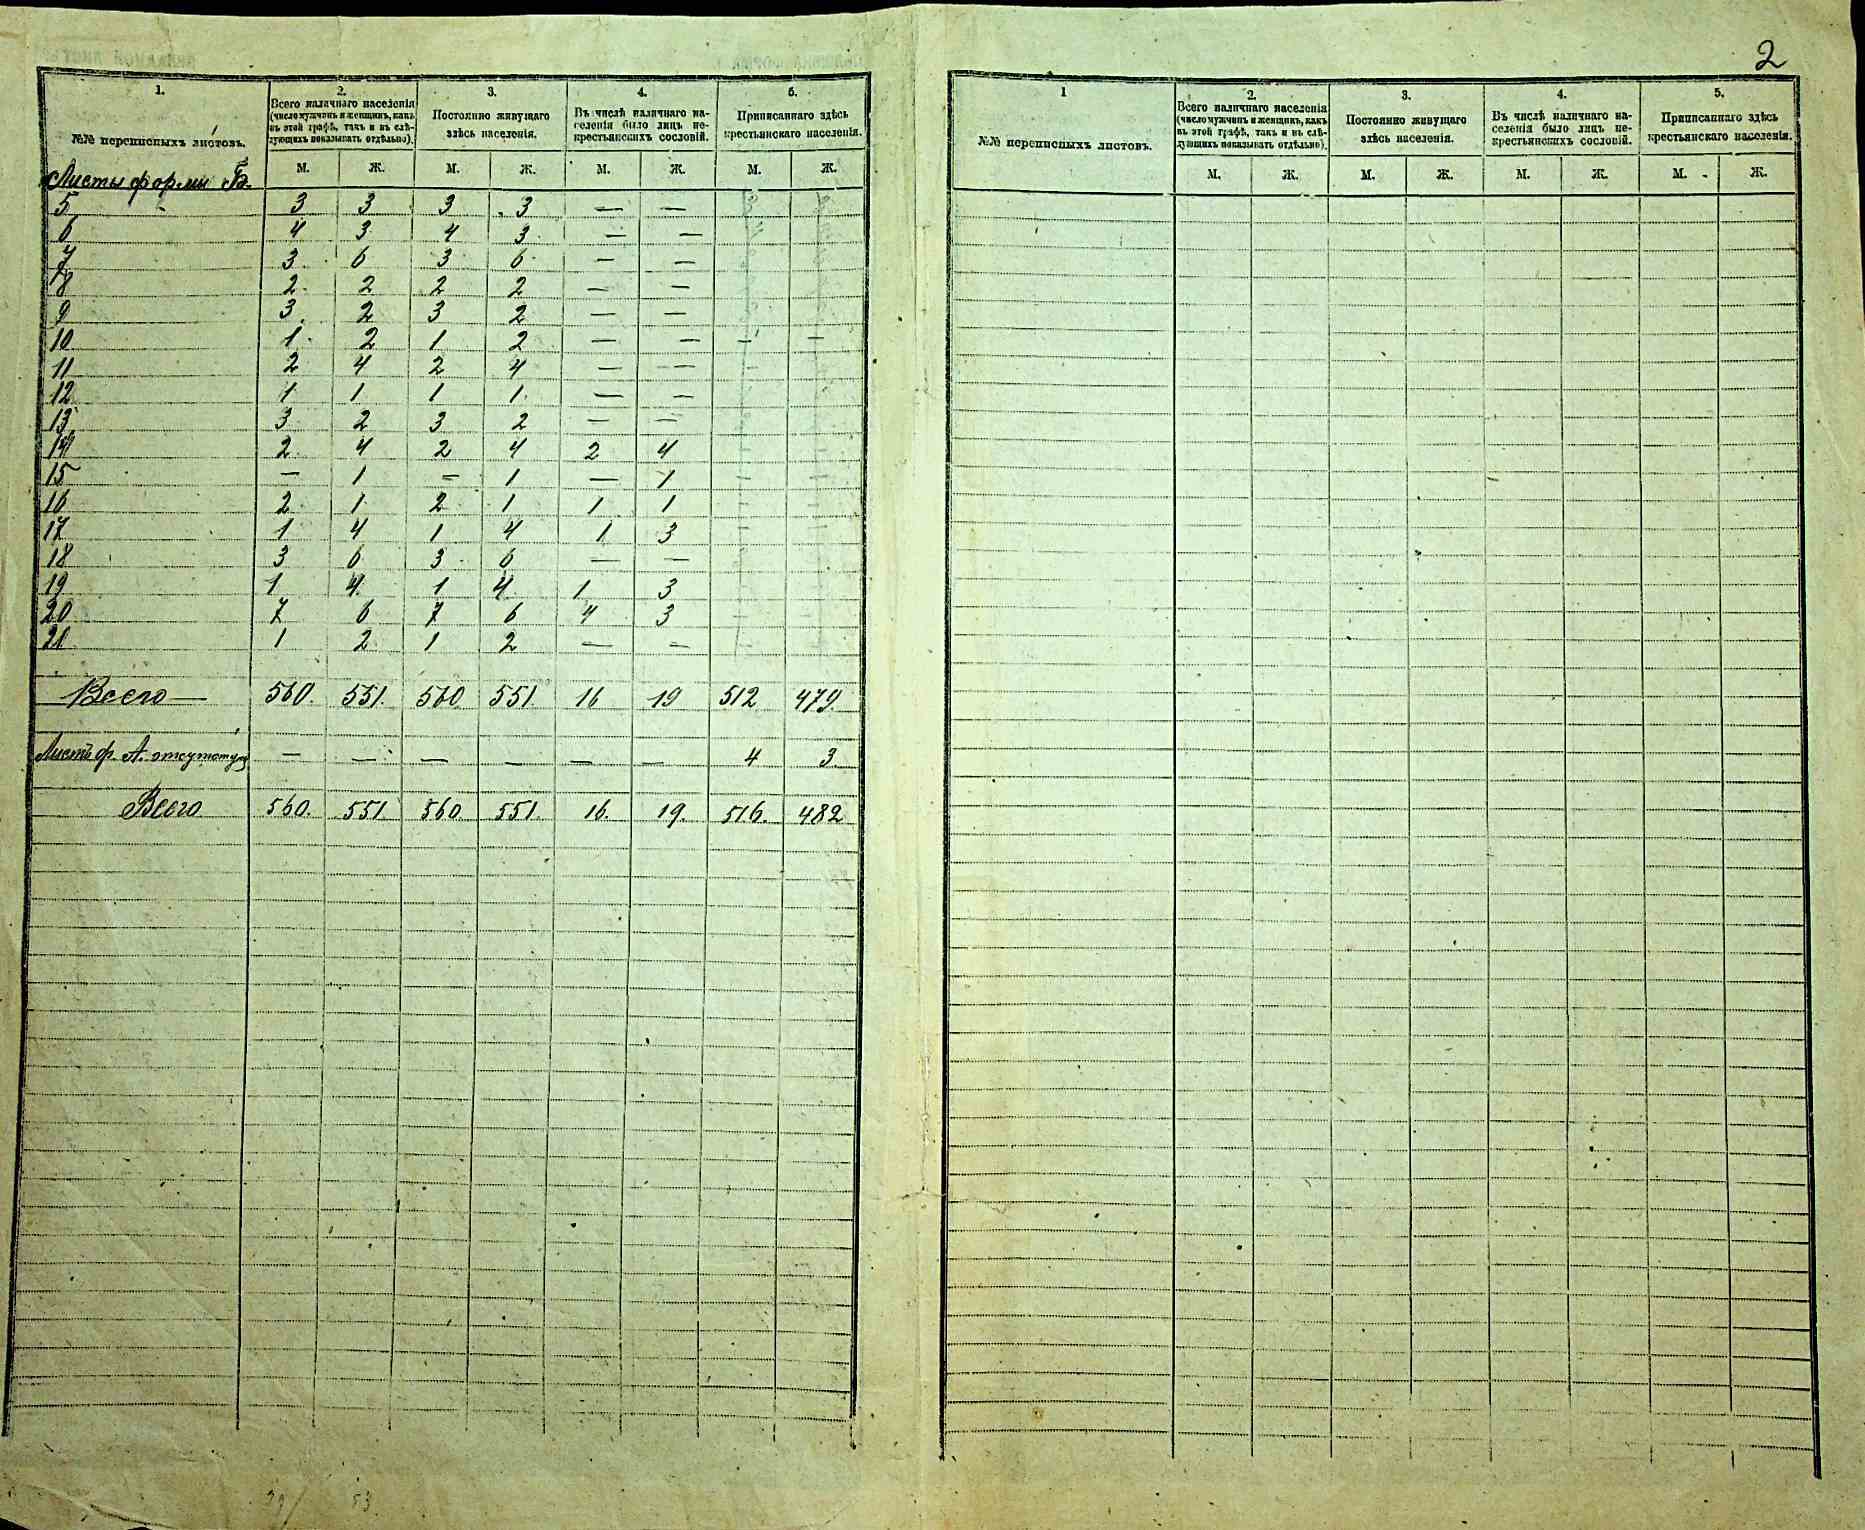 2
1. 2. 3. 4. 5.
№№ переписныхъ листовъ.
Всего наличнаго населенія
(число мужчинъ и женщинъ, какъ
въ этой графѣ, такъ и въ слѣ-
дующихъ показывать отдѣльно).
Постоянно живущаго
здѣсь населенія.
Въ числѣ наличнаго на-
селенія было лицъ не-
крестьянскихъ сословій.
Приписаннаго здѣсь
крестьянскаго населенія.
М. Ж. М. Ж. М. Ж. М. Ж.
Листы формы Б.
5 3 3 3 3 — —
6 4 3 4 3 — —
7 3 6 3 6 — —
8 2 2 2 2 — —
9 3 2 3 2 — —
10 1 2 1 2 — — — —
11 2 4 2 4 — —
12 1 1 1 1 — —
13 3 2 3 2 — —
14 2 4 2 4 2 4
15 — 1 — 1 — 1
16 2 1 2 1 1 1
17 1 4 1 4 1 3
18 3 6 3 6 — —
19 1 4 1 4 1 3
20 7 6 7 6 4 3
21 1 2 1 2 — —
Всего 560. 551. 560 551. 16 19 512 479.
Листъ ф. А. — — — — — — 4 3.
Всего 560. 551 560. 551. 16. 19. 516. 482
1 2. 3. 4. 5.
№№ переписныхъ листовъ.
Всего наличнаго населенія
(число мужчинъ и женщинъ, какъ
въ этой графѣ, такъ и въ слѣ-
дующихъ показывать отдѣльно).
Постоянно живущаго
здѣсь населенія.
Въ числѣ наличнаго на-
селенія было лицъ не-
крестьянскихъ сословій.
Приписаннаго здѣсь
крестьянскаго населенія.
М. Ж. М. Ж. М. Ж. М. Ж.